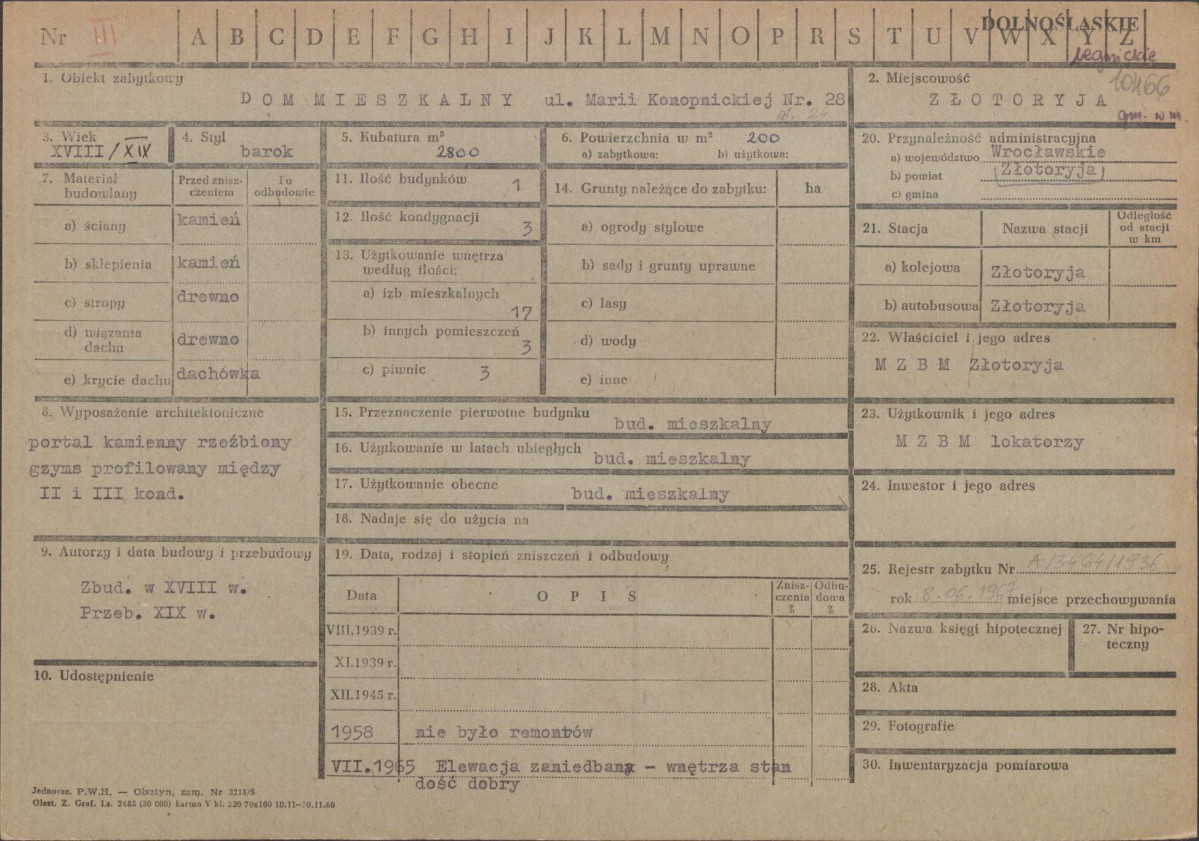 DOLNOŚLĄSKIE
Nr III A B C D E F G H I J K L M N O P R S T U V W X Y Z
legnickie
1. Obiekt zabytkowy
DOM MIESZKALNY ul. Marii Konopnickiej Nr. 28
2. Miejscowość
10466
ZŁOTORYJA
gm. w m.
3. Wiek
XVIII/XIX
4. Styl
barok
5. Kubatura m³
2800
6. Powierzchnia w m² 200
a) zabytkowa: b) użytkowa:
7. Materiał budowlany
Przed zniszczeniem
Po odbudowie
a) ściany kamień
b) sklepienia kamień
c) stropy drewno
d) wiązania dachu drewno
e) krycie dachu dachówka
8. Wyposażenie architektoniczne
portal kamienny rzeźbiony
gzyms profilowany między
II i III kond.
9. Autorzy i data budowy i przebudowy
Zbud. w XVIII w.
Przeb. XIX w.
10. Udostępnienie
11. Ilość budynków 1
12. Ilość kondygnacji 3
13. Użytkowanie wnętrza
według ilości:
a) izb mieszkalnych 17
b) innych pomieszczeń 3
c) piwnic 3
14. Grunty należące do zabytku: ha
a) ogrody stylowe
b) sady i grunty uprawne
c) lasy
d) wody
e) inne
15. Przeznaczenie pierwotne budynku
bud. mieszkalny
16. Użytkowanie w latach ubiegłych
bud. mieszkalny
17. Użytkowanie obecne
bud. mieszkalny
18. Nadaje się do użycia na
19. Data, rodzaj i stopień zniszczeń i odbudowy
Data OPIS Zniszczenia % Odbudowa %
VIII.1939 r.
XI.1939 r.
XII.1945 r.
1958 nie było remontów
VII.1965 Elewacja zaniedbana – wnętrza stan
dość dobry
20. Przynależność administracyjna
a) województwo Wrocławskie
b) powiat Złotoryja
c) gmina
21. Stacja Nazwa stacji Odległość od stacji w km
a) kolejowa Złotoryja
b) autobusowa Złotoryja
22. Właściciel i jego adres
M Z B M Złotoryja
23. Użytkownik i jego adres
M Z B M lokatorzy
24. Inwestor i jego adres
25. Rejestr zabytku Nr A/3464/1936
rok 8.06.1967 miejsce przechowywania
26. Nazwa księgi hipotecznej
27. Nr hipoteczny
28. Akta
29. Fotografie
30. Inwentaryzacja pomiarowa
Jednoraz. P.W.H. — Olsztyn, zam. Nr 3215/S
Olszt. Z. Graf. Lz. 2485 (30 000) karton V kl. 220 70x100 10.11—30.11.60